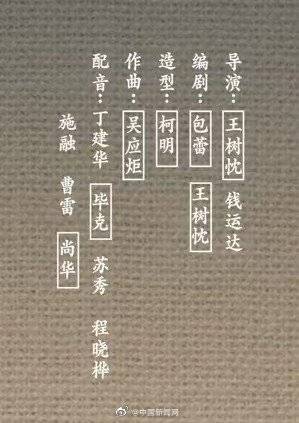 导演：王树忱 钱运达
编剧：包蕾 王树忱
造型：柯明
作曲：吴应炬
配音：丁建华 毕克 苏秀 程晓桦
施融 曹雷 尚华
@中国新闻网